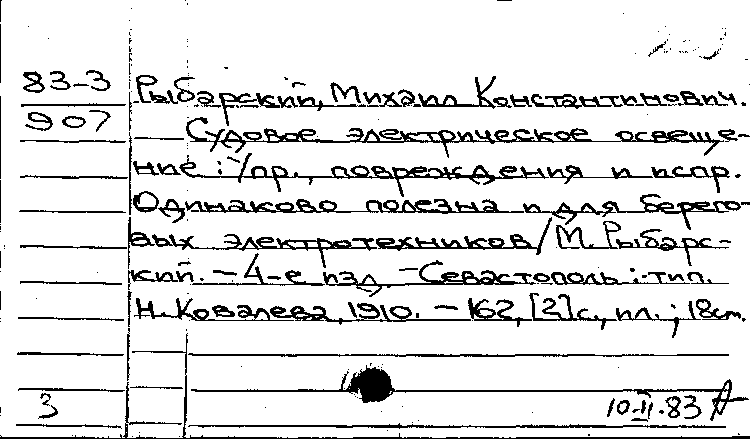 83-3
907
Рыбарский, Михаил Константинович.
Судовое электрическое освеще-
ние : Упр., повреждения и испр.
Одинаково полезна и для берего-
вых электротехников / М. Рыбарс-
кий. - 4-е изд. - Севастополь : тип.
Н. Ковалева, 1910. - 162, [2] с., ил. ; 18 см.
3
10.II.83